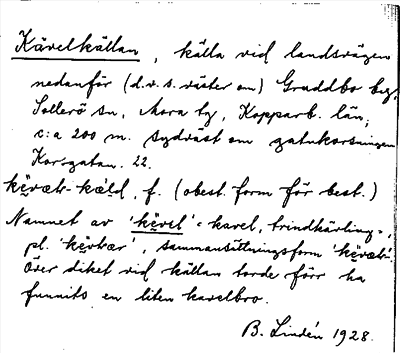 Kävelkällan, källa vid landsvägen
nedanför (d.v.s. väster om) Gruddbo by,
Sollerö sn, Mora tg, Kopparb. län,
c:a 200 m. sydväst om gatukorsningen
Korsgatan. 22.
f. (obest. form för best.)
Namnet av 'kevel' = kavel, trindkärling-,
pl. sammansättningsform
Över diket vid källan torde förr ha
funnits en liten kavelbro.
B. Lindén 1928.